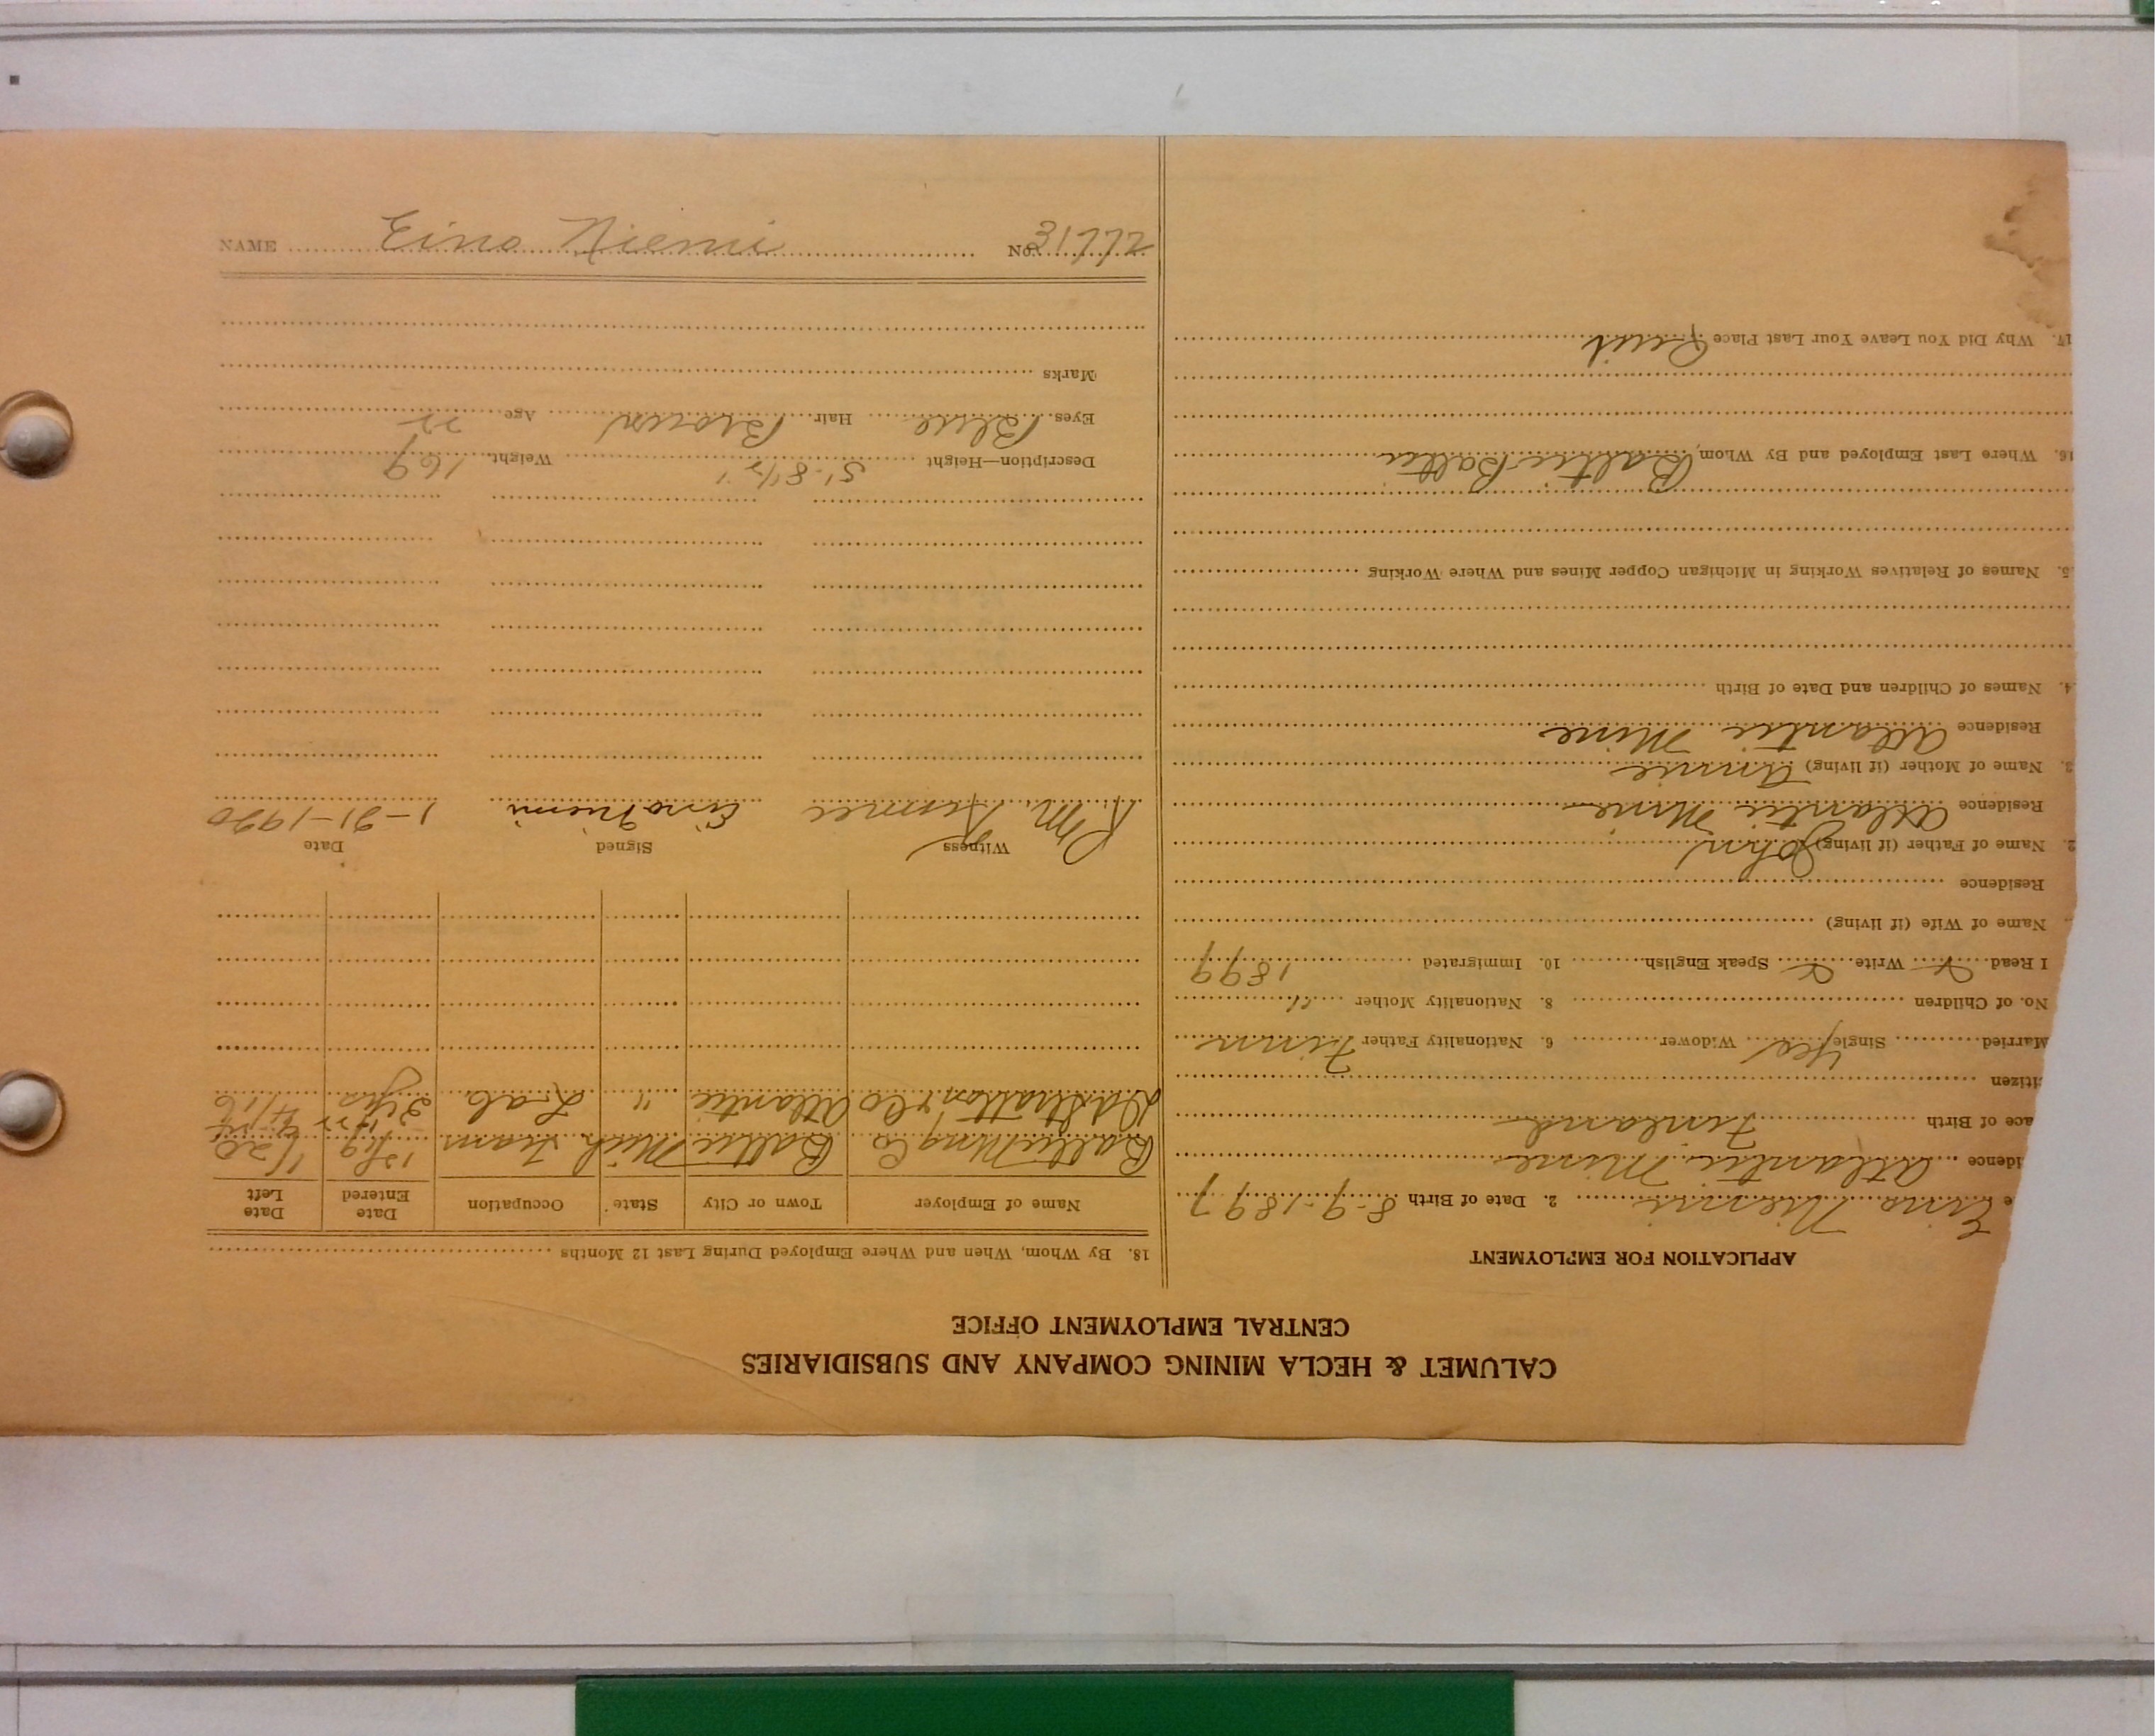 CALUMET & HECLA MINING COMPANY AND SUBSIDIARIES
CENTRAL EMPLOYMENT OFFICE
APPLICATION FOR EMPLOYMENT
e Eino Niemi 2. Date of Birth 8-9-1897
idence Atlantic Mine
ace of Birth Finland
itizen
Married Single Yes Widower 6. Nationality Father Finn
No. of Children 8. Nationality Mother "
I Read Write Speak English 10. Immigrated 1899
Name of Wife (if living)
Residence
2. Name of Father (if living) John
Residence Atlantic Mine
3. Name of Mother (if living) Annie
Residence Atlantic Mine
4. Names of Children and Date of Birth
5. Names of Relatives Working in Michigan Copper Mines and Where Working
16. Where Last Employed and By Whom, Baltic Baltic
17. Why Did You Leave Your Last Place Quit
18. By Whom, When and Where Employed During Last 12 Months
Name of Employer Town or City State Occupation Date Entered Date Left
Baltic Mng Co Baltic Mich Tram 1/20
Stratton & Co Atlantic " Lab 3 yrs
Witness Signed Date
R.M. Eino Niemi 1-21-1920
Description—Height 5'-8 1/2" Weight 169
Eyes Blue Hair Brown Age 22
Marks
NAME Eino Niemi NO. 31772